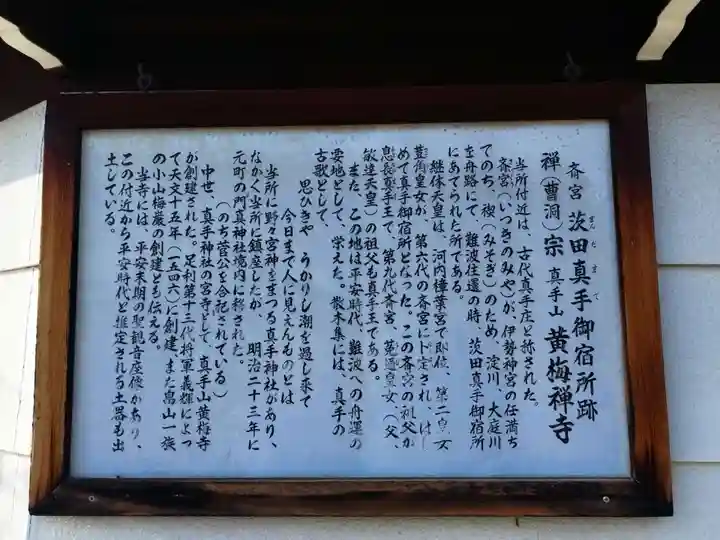 斎宮 茨田真手御宿所跡
まんだまて
禅(曹洞)宗 真手山 黄梅禅寺
当所付近は、古代真手庄と称された。
斎宮(いつきのみや)が、伊勢神宮の任満ち
てのち、禊(みそぎ)のため、淀川、大庭川
を舟路にて、難波往還の時、茨田真手御宿所
にあてられた所である。
継体天皇は、河内樟葉宮で即位、第二皇女
荳角皇女が、第六代の斎宮に卜定され、はじ
めて真手御宿所となった。この斎宮の祖父が
息長真手王で、第九代斎宮、菟道皇女(父、
敏達天皇)の祖父も真手王である。
また、この地は平安時代、難波への舟運の
要地として、栄えた。散木集には、真手の
古歌として、
思ひきや うかりし潮を過し来て
今日まで人に見えんものとは
当所に野々宮神をまつる真手神社があり、
(のち菅公を合祀されている)
なかく当所に鎮座したが、明治二十三年に
元町の門真神社境内に移された。
中世、真手神社の宮寺として、真手山黄梅寺
が創建された。足利第十三代将軍義輝によっ
て天文十五年(一五四六)に創建、また畠山一族
の小山梅巌の創建とも伝える。
当寺には、平安末期の聖観音座像があり、
この付近から平安時代と推定される土器も出
土している。